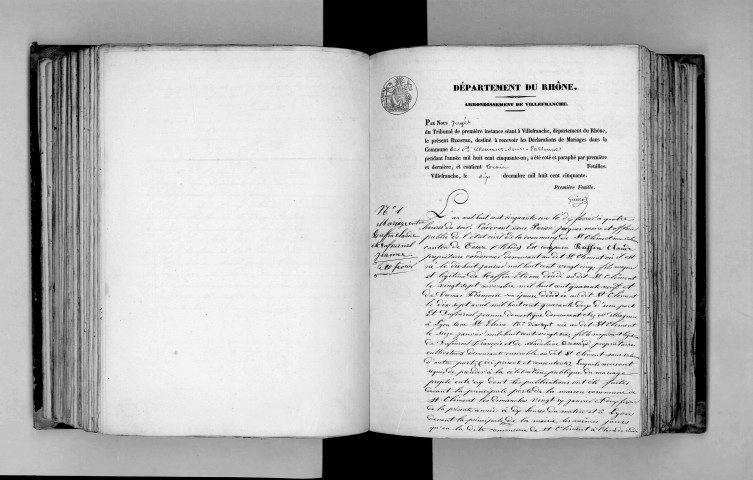 DÉPARTEMENT DU RHÔNE.
ARRONDISSEMENT DE VILLEFRANCHE.
PAR NOUS Juge
du Tribunal de première instance séant à Villefranche, département du Rhône,
le présent REGISTRE, destiné à recevoir les Déclarations de Mariages dans la
Commune de St Clément sous Valsonne
pendant l'année mil huit cent cinquante-un, a été coté et paraphé par première
et dernière, et contient trois Feuilles.
Villefranche, le dix décembre mil huit cent cinquante.
Première Feuille.
No 1
Mariage entre
Ruffin Claude
et Dufournel
Jeanne
le 10 février
L'an mil huit cent cinquante un le dix février à quatre
heures du soir. Pardevant nous Jacques maire et officier
public de l'état civil de la commune de St Clément
canton de Tarare (Rhône) Est comparu Ruffin Claude
propriétaire cordonnier demeurant au dit St Clément où il est
né le dix huit janvier mil huit cent vingt cinq fils majeur
et légitime de Ruffin Etienne décédé au dit St Clément
le vingt sept novembre mil huit cent quarante neuf et
de Dumas Françoise décédée au dit St Clément
le dix sept avril mil huit cent quarante d'une part
Et Dufournel Jeanne domestique demeurant chez Mr
à Lyon rue St No dix sept née au dit St Clément
le seize janvier mil huit cent vingt six fille majeure et légitime
de Dufournel François et de Madeleine propriétaires
cultivateurs demeurants ensemble au dit St Clément
d'autre part, ici présents et consentants. Lesquels nous ont
requis de procéder à la célébration publique du mariage
projeté entre eux dont les publications ont été faites
devant la principale porte de la maison commune de
St Clément les dimanches vingt six janvier et deux février
de la présente année à dix heures du matin et à Lyon
devant la principale porte de la mairie les mêmes jours
qu'en la dite commune de St Clément à l'heure de